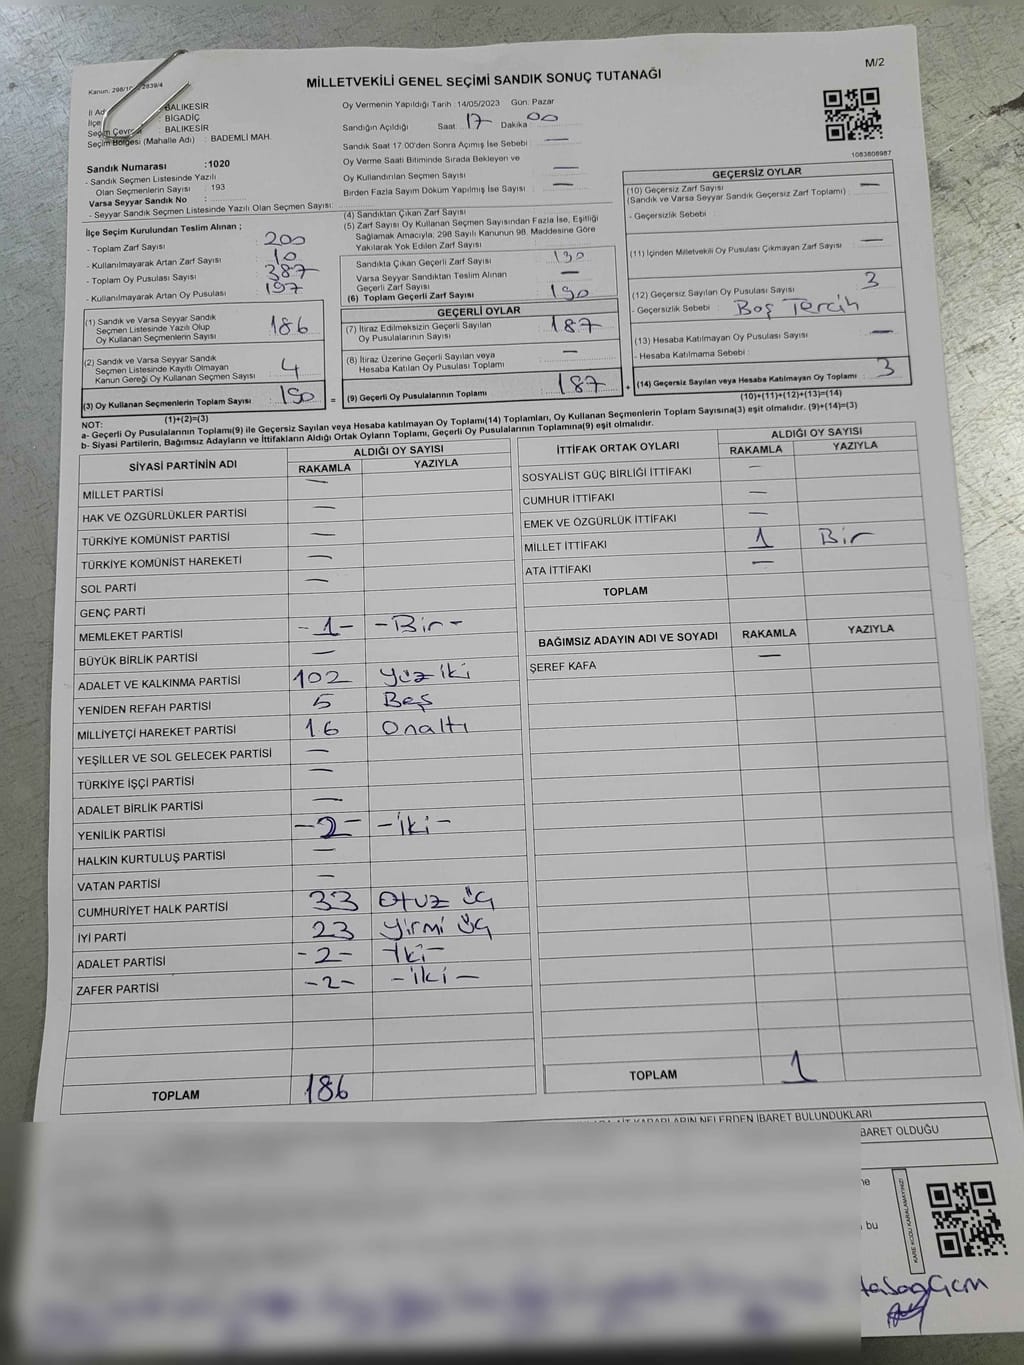 M/2
MİLLETVEKİLİ GENEL SEÇİMİ SANDIK SONUÇ TUTANAĞI
Kanun. 298/10 2839/4
İl Ad BALIKESİR
İlçe BİGADİÇ
Seçim Çevre BALIKESİR
Seçim Bölgesi (Mahalle Adı) : BADEMLİ MAH.
Sandık Numarası :1020
- Sandık Seçmen Listesinde Yazılı
Olan Seçmenlerin Sayısı : 193
Varsa Seyyar Sandık No :
- Seyyar Sandık Seçmen Listesinde Yazılı Olan Seçmen Sayısı:
İlçe Seçim Kurulundan Teslim Alınan ;
- Toplam Zarf Sayısı : 200
- Kullanılmayarak Artan Zarf Sayısı : 10
- Toplam Oy Pusulası Sayısı : 387
- Kullanılmayarak Artan Oy Pusulası : 197
(1) Sandık ve Varsa Seyyar Sandık
Seçmen Listesinde Yazılı Olup
Oy Kullanan Seçmenlerin Sayısı : 186
(2) Sandık ve Varsa Seyyar Sandık
Seçmen Listesinde Kayıtlı Olmayan
Kanun Gereği Oy Kullanan Seçmen Sayısı : 4
(3) Oy Kullanan Seçmenlerin Toplam Sayısı : 190
(1)+(2)=(3)
Oy Vermenin Yapıldığı Tarih : 14/05/2023 Gün: Pazar
Sandığın Açıldığı Saat: 17 Dakika 00
Sandık Saat 17:00'den Sonra Açımış İse Sebebi : —
Oy Verme Saati Bitiminde Sırada Bekleyen ve
Oy Kullandırılan Seçmen Sayısı : —
Birden Fazla Sayım Döküm Yapılmış İse Sayısı : —
(4) Sandıktan Çıkan Zarf Sayısı
(5) Zarf Sayısı Oy Kullanan Seçmen Sayısından Fazla İse, Eşitliği
Sağlamak Amacıyla, 298 Sayılı Kanunun 98. Maddesine Göre
Yakılarak Yok Edilen Zarf Sayısı :
Sandıkta Çıkan Geçerli Zarf Sayısı : 190
Varsa Seyyar Sandıktan Teslim Alınan
Geçerli Zarf Sayısı : —
(6) Toplam Geçerli Zarf Sayısı : 190
GEÇERLİ OYLAR
(7) İtiraz Edilmeksizin Geçerli Sayılan
Oy Pusulalarının Sayısı : 187
(8) İtiraz Üzerine Geçerli Sayılan veya
Hesaba Katılan Oy Pusulası Toplamı : —
= (9) Geçerli Oy Pusulalarının Toplamı : 187 +
1083808987
GEÇERSİZ OYLAR
(10) Geçersiz Zarf Sayısı
(Sandık ve Varsa Seyyar Sandık Geçersiz Zarf Toplamı) : —
- Geçersizlik Sebebi :
(11) İçinden Milletvekili Oy Pusulası Çıkmayan Zarf Sayısı : —
(12) Geçersiz Sayılan Oy Pusulası Sayısı : 3
- Geçersizlik Sebebi : Boş Tercih
(13) Hesaba Katılmayan Oy Pusulası Sayısı : —
- Hesaba Katılmama Sebebi :
(14) Geçersiz Sayılan veya Hesaba Katılmayan Oy Toplamı : 3
(10)+(11)+(12)+(13)=(14)
NOT:
a- Geçerli Oy Pusulalarının Toplamı(9) ile Geçersiz Sayılan veya Hesaba katılmayan Oy Toplamı(14) Toplamları, Oy Kullanan Seçmenlerin Toplam Sayısına(3) eşit olmalıdır. (9)+(14)=(3)
b- Siyasi Partilerin, Bağımsız Adayların ve İttifakların Aldığı Ortak Oyların Toplamı, Geçerli Oy Pusulalarının Toplamına(9) eşit olmalıdır.
SİYASİ PARTİNİN ADI ALDIĞI OY SAYISI
RAKAMLA YAZIYLA
MİLLET PARTİSİ —
HAK VE ÖZGÜRLÜKLER PARTİSİ —
TÜRKİYE KOMÜNİST PARTİSİ —
TÜRKİYE KOMÜNİST HAREKETİ —
SOL PARTİ —
GENÇ PARTİ
MEMLEKET PARTİSİ -1- -Bir-
BÜYÜK BİRLİK PARTİSİ —
ADALET VE KALKINMA PARTİSİ 102 Yüz iki
YENİDEN REFAH PARTİSİ 5 Beş
MİLLİYETÇİ HAREKET PARTİSİ 16 Onaltı
YEŞİLLER VE SOL GELECEK PARTİSİ —
TÜRKİYE İŞÇİ PARTİSİ —
ADALET BİRLİK PARTİSİ —
YENİLİK PARTİSİ -2- -iki-
HALKIN KURTULUŞ PARTİSİ —
VATAN PARTİSİ —
CUMHURİYET HALK PARTİSİ 33 Otuz üç
İYİ PARTİ 23 Yirmi üç
ADALET PARTİSİ -2- İki-
ZAFER PARTİSİ -2- -iki-
TOPLAM 186
İTTİFAK ORTAK OYLARI ALDIĞI OY SAYISI
RAKAMLA YAZIYLA
SOSYALİST GÜÇ BİRLİĞİ İTTİFAKI —
CUMHUR İTTİFAKI —
EMEK VE ÖZGÜRLÜK İTTİFAKI —
MİLLET İTTİFAKI 1 Bir
ATA İTTİFAKI —
TOPLAM
BAĞIMSIZ ADAYIN ADI VE SOYADI RAKAMLA YAZIYLA
ŞEREF KAFA —
TOPLAM 1
KARARLARIN NELERDEN İBARET BULUNDUKLARI
BARET OLDUĞU
ne
bu
KARE KODU KARALAMAYINIZ!